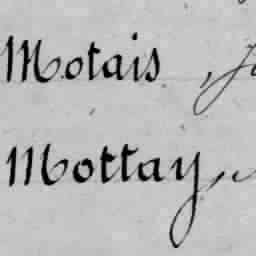 Motais,
Mottay,